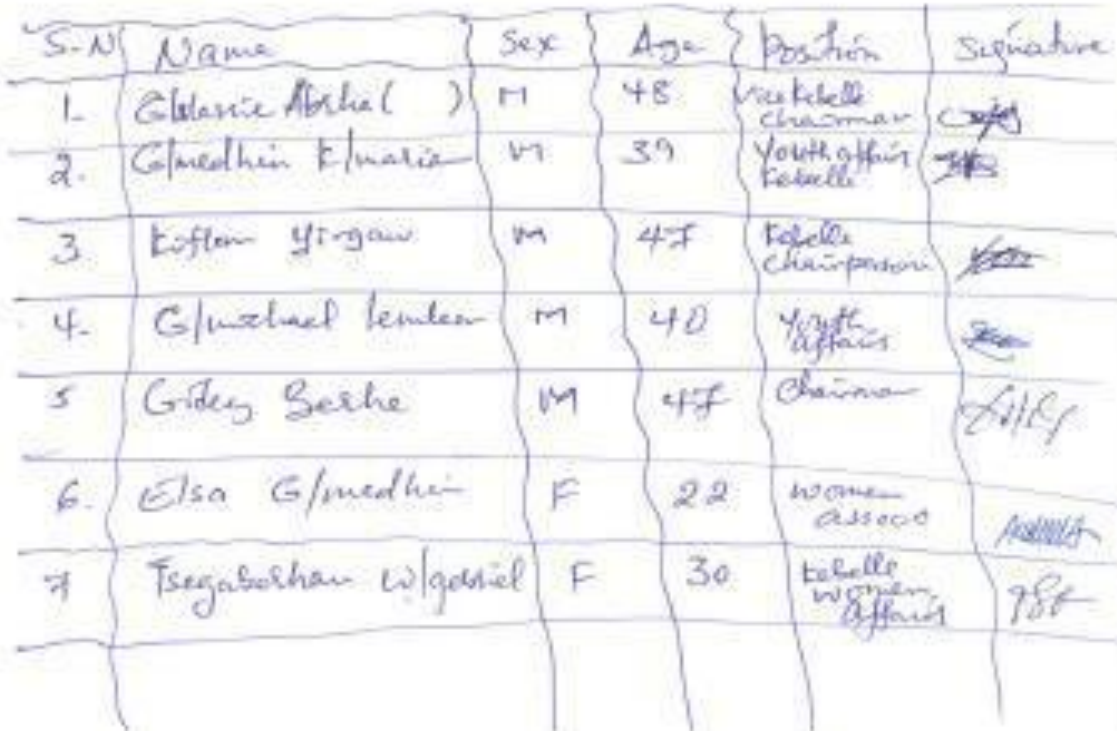 S.N Name Sex Age Position Signature
1. Abrha ( ) M 48 Vice kebelle chairman
2. G/medhin k/maria M 39 Youth affairs kebelle
3 Kiflom Yirgaw M 47 Kebelle chairperson
4. G/michael M 40 Youth affairs
5 Gidey Berhe M 47 Chairman
6. Elsa G/medhin F 22 women assoco
7 Tsegaberhan w/gebriel F 30 kebelle women affairs